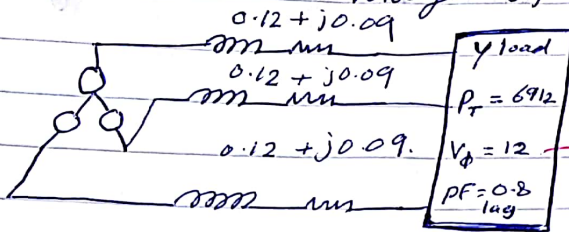 0.12 + j0.09
0.12 + j0.09
0.12 + j0.09.
Y load
P_T = 6912
V_ϕ = 12
PF = 0.8
lag